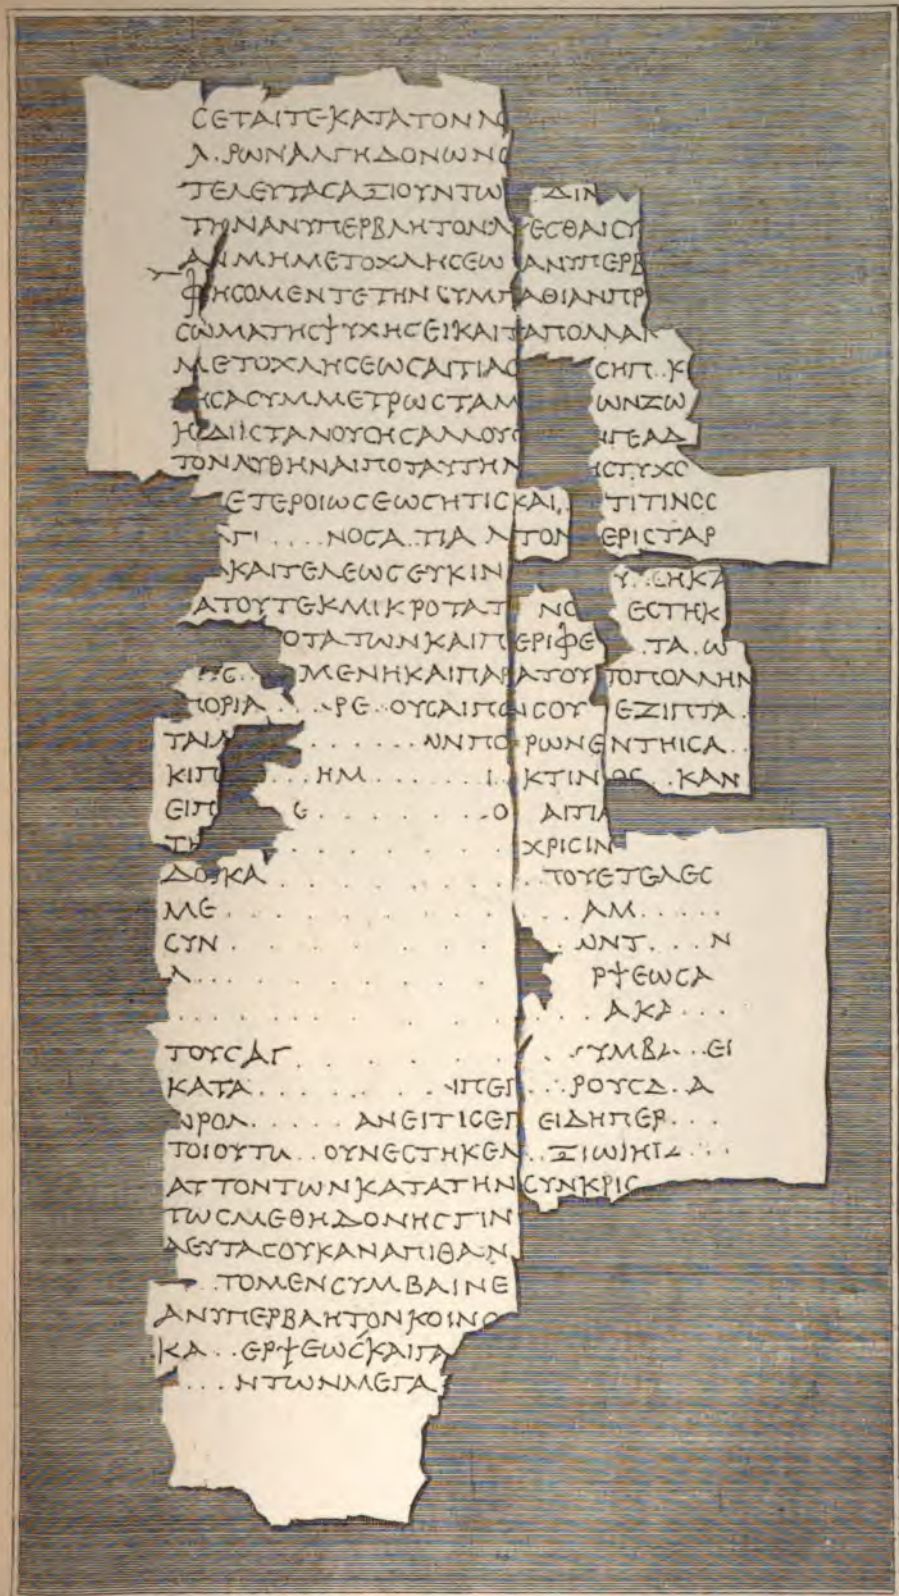 CΕΤΑΙΤΕΚΑΤΑΤΟΝΝΟ
Λ.ΡΩΝΑΛΓΗΔΟΝΩΝΟ
ΤΕΛΕΥΤΑCΑΞΙΟΥΝΤΩ ..ΔΙΝ
ΤΗΝΑΝΥΠΕΡΒΛΗΤΟΝΛΥΕCΘΑΙCΥ
ΑΝΜΗΜΕΤΟΧΛΗCΕΩ ΑΝΥΠΕΡΒ
ΦΗCΟΜΕΝΤΕΤΗΝCΥΜΠΑΘΙΑΝΠΡ
CΩΜΑΤΗCΨΥΧΗCΕΙΚΑΙΤΑΠΟΛΛΑΚ
ΜΕΤΟΧΛΗCΕΩCΑΙΤΙΑC CΗΠ..Κ
ΗCΑCΥΜΜΕΤΡΩCΤΑΜ ΩΝΖΩ
ΗΔΙΙCΤΑΝΟΥCΗCΑΛΛΟΥC ΠΕΑΔ
ΤΟΝΛΥΘΗΝΑΙΠΟΤΑΥΤΗΝ ΗCΤΥΧΟ
ΕΤΕΡΟΙΩCΕΩCΗΤΙCΚΑΙ.. ΤΙΤΙΝΟC
ΓΙ....ΝΟCΑ.ΤΙΑ ΛΤΟΝ ΕΡΙCΤΑΡ
ΚΑΙΤΕΛΕΩCΕΥΚΙΝ Υ..CΗΚΑ
ΑΤΟΥΤΕΚΜΙΚΡΟΤΑΤ ΝΟ ΕCΤΗΚ
ΟΤΑΤΩΝΚΑΙΠΕΡΙΦΕ ΤΑ.Ω
ΗC.. ΜΕΝΗΚΑΙΠΑΡΑΤΟΥΤΟΠΟΛΛΗΝ
ΠΟΡΙΑ...ΡΕ.ΟΥCΑΙΠΩΙCΟΥ ΕΞΙΠΤΑ.
ΤΑΙΛ........ΩΝΠΟ ΡΩΝΕΝΤΗΙCΑ..
ΚΙΠ....ΗΜ.......Ι. ΚΤΙΝΟC..ΚΑΝ
ΕΙΠ Ε.........Ο ΑΙΤΙΑ
ΤΗ.........ΧΡΙCΙΝ
ΔΟΙΚΑ............ΤΟΥΕΤΕΛΕC
ΜΕ............ΑΜ.....
CΥΝ..........ΩΝΤ...Ν
Λ......... ΡΨΕΩCΑ
..............ΑΚΑ...
ΤΟΥCΑΓ.........CΥΜΒΑ..ΕΙ
ΚΑΤΑ........ΙΠΕΠ...ΡΟΥCΔ.Α
ΩΡΟΛ..... ΑΝΕΙΤΙCΕΠ ΕΙΔΗΠΕΡ...
ΤΟΙΟΥΤΩ..ΟΥΝΕCΤΗΚΕΝ..ΞΙΩΙΗΙΔ...
ΑΤΤΟΝΤΩΝΚΑΤΑΤΗΝCΥΝΚΡΙC
ΤΩCΜΕΘΗΔΟΝΗCΓΙΝ
ΛΕΥΤΑCΟΥΚΑΝΑΠΙΘΑΝ
..ΤΟΜΕΝCΥΜΒΑΙΝΕ
ΑΝΥΠΕΡΒΛΗΤΟΝΚΟΙΝΟ
ΚΑ..ΕΡΨΕΩCΚΑΙΠΑ
....ΝΤΩΝΜΕΓΑ